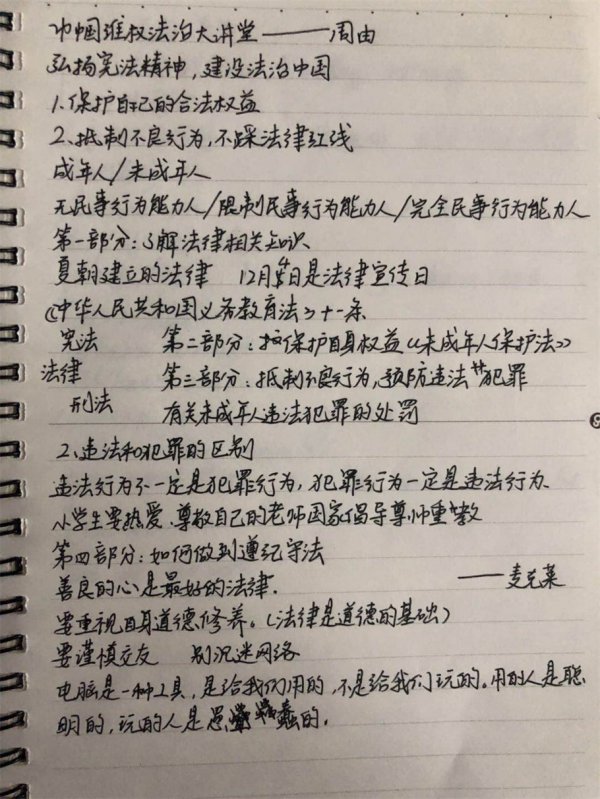 巾帼维权法治大讲堂——周由
弘扬宪法精神，建设法治中国
1.保护自己的合法权益
2.抵制不良行为，不踩法律红线
成年人/未成年人
无民事行为能力人/限制民事行为能力人/完全民事行为能力人
第一部分：了解法律相关知识
夏朝建立的法律 12月4日是法律宣传日
《中华人民共和国义务教育法》十一条
宪法 第二部分：保护自身权益《未成年人保护法》
法律 第三部分：抵制不良行为，预防违法犯罪
刑法 有关未成年人违法犯罪的处罚
2.违法和犯罪的区别
违法行为不一定是犯罪行为，犯罪行为一定是违法行为
小学生要热爱、尊敬自己的老师国家倡导尊师重教
第四部分：如何做到遵纪守法
善良的心是最好的法律. ——麦克莱
要重视自身道德修养。（法律是道德的基础）
要谨慎交友 别沉迷网络
电脑是一种工具，是给我们用的，不是给我们玩的。用的人是聪
明的，玩的人是愚蠢的.